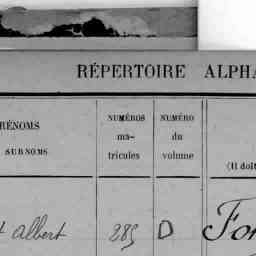 RÉPERTOIRE ALPHA
RÉNOMS
SURNOMS
NUMÉROS
ma-
tricules
NUMÉRO
du
volume
(Il doit
albert 285 D For